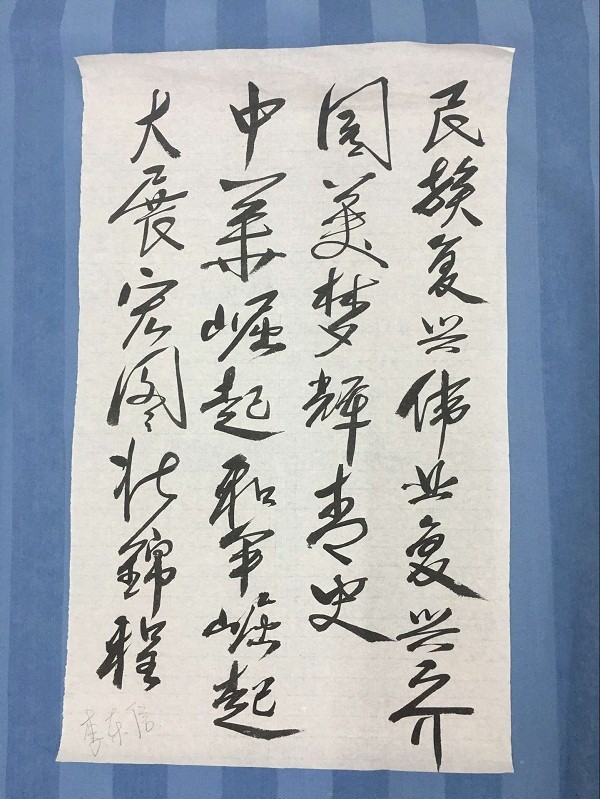 民族复兴伟业复兴
圆美梦辉青史
中华崛起和平崛起
大展宏图壮锦程
李东信